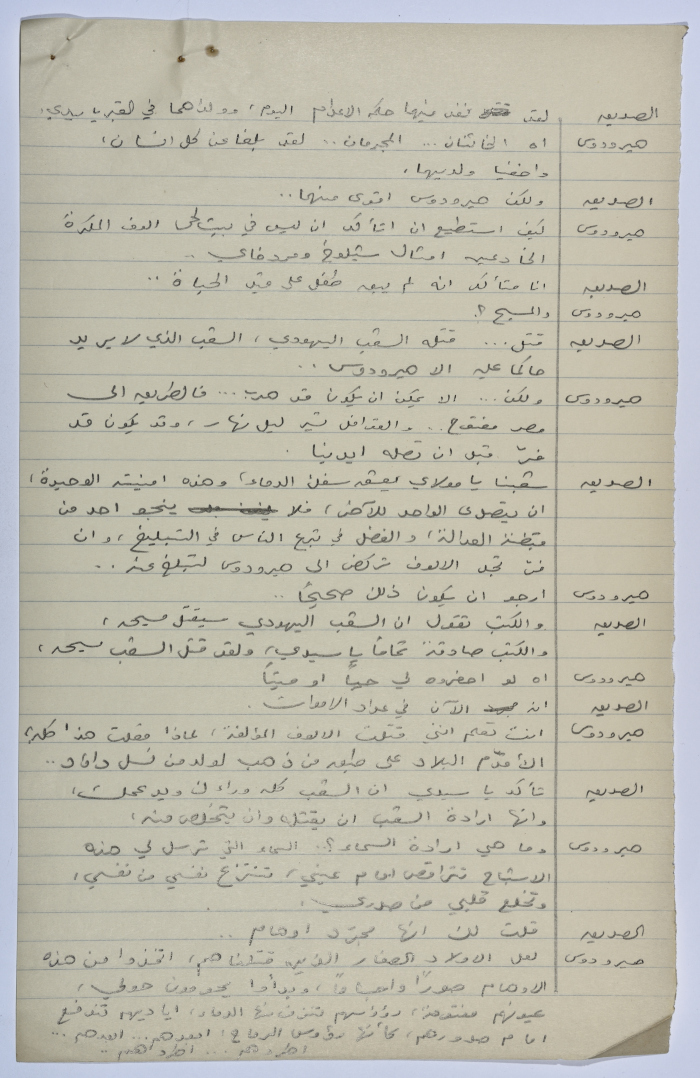 الصديق لقد نفذ فيهما حكم الاعدام اليوم، وولداهما في القبر يا سيدي.
هيرودوس اه الخائنان... المجرمان.. لقد بلغا عن كل انسان،
واخفيا ولديهما.
الصديق ولكن هيرودوس اقوى منهما..
هيرودوس كيف استطيع ان اتأكد ان ليس في بيت لحم الوف المكرة
الخادعين امثال شيلوخ ومردخاي ..
الصديق انا متأكد انه لم يبق طفل على قيد الحياة ..
هيرودوس والمسيح ؟.
الصديق قتل... قتله الشعب اليهودي، الشعب الذي لا يريد
حاكما عليه الا هيرودوس ..
هيرودوس ولكن... الا يمكن ان يكون قد هرب... فالطريق الى
مصر مفتوح.. والقوافل تسير ليل نهار، وقد يكون قد
فرّ قبل ان تصله ايدينا.
الصديق شعبنا يا مولاي يعشق سفك الدماء، وهذه امنيته الوحيدة،
ان يتصدى الواحد للآخر، فلا ينجو احد من
قبضة العدالة، والفضل في تبرع الناس في التبليغ، وان
فرّ تجد الالوف تركض الى هيرودوس لتبلغ عنه ..
هيرودوس ارجو ان يكون ذلك صحيحًا ..
الصديق والكتب تقول ان الشعب اليهودي سيقتل مسيحه،
والكتب صادقة تمامًا يا سيدي، ولقد قتل الشعب مسيحه،
هيرودوس اه لو احضروه لي حيًا او ميتًا
الصديق انه الآن في عداد الاموات.
هيرودوس انت تعلم انني قتلت الالوف المؤلفة، لماذا فعلت هذا كله،
الأقدّم البلاد على طبق من ذهب لولد من نسل داود ..
الصديق تأكد يا سيدي ان الشعب كله وراءك ويد عملت،
وانها ارادة الشعب ان يقتله وان يتخلص منه،
هيرودوس وما هي ارادة السماء؟.. السماء التي ترسل لي هذه
الاشباح تتراقص امام عيني، تنتزع نفسي من نفسي،
وتخلع قلبي من صدري.
الصديق قلت لك انها مجرّد اوهام ..
هيرودوس لعل الاولاد الصغار الذين قتلناهم، اتخذوا من هذه
الاوهام صورًا، وبدأوا يحومون حولي،
عيونهم مفتوحة، رؤوسهم تنزف منها الدماء، اياديهم تندفع
امام صدورهم، كأنها رؤوس الرماح، ابعدهم... ابعدهم ...
اطردهم ... اطردهم ..